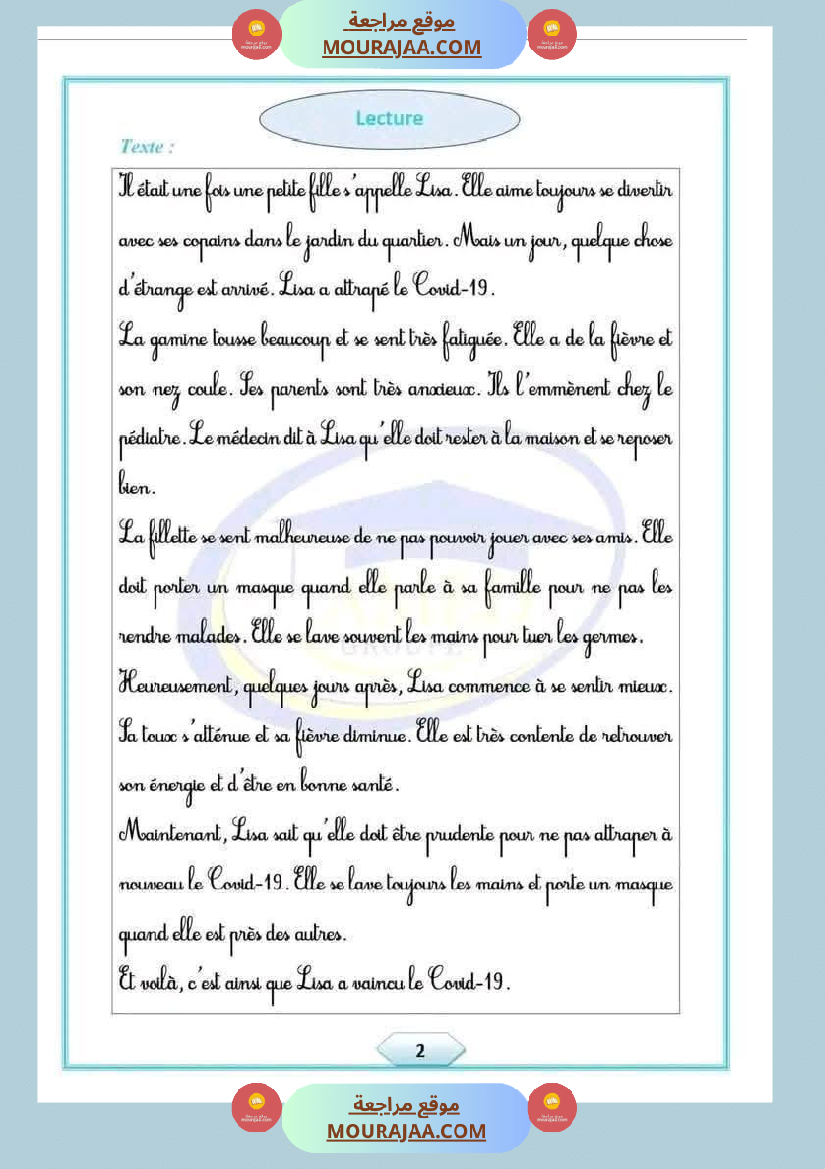 موقع مراجعة
MOURAJAA.COM
Lecture
Texte :
Il était une fois une petite fille s'appelle Lisa. Elle aime toujours se divertir
avec ses copains dans le jardin du quartier. Mais un jour, quelque chose
d'étrange est arrivé. Lisa a attrapé le Covid-19.
La gamine tousse beaucoup et se sent très fatiguée. Elle a de la fièvre et
son nez coule. Ses parents sont très anxieux. Ils l'emmènent chez le
pédiatre. Le médecin dit à Lisa qu'elle doit rester à la maison et se reposer
bien.
La fillette se sent malheureuse de ne pas pouvoir jouer avec ses amis. Elle
doit porter un masque quand elle parle à sa famille pour ne pas les
rendre malades. Elle se lave souvent les mains pour tuer les germes.
Heureusement, quelques jours après, Lisa commence à se sentir mieux.
Sa toux s'atténue et sa fièvre diminue. Elle est très contente de retrouver
son énergie et d'être en bonne santé.
Maintenant, Lisa sait qu'elle doit être prudente pour ne pas attraper à
nouveau le Covid-19. Elle se lave toujours les mains et porte un masque
quand elle est près des autres.
Et voilà, c'est ainsi que Lisa a vaincu le Covid-19.
2
موقع مراجعة
MOURAJAA.COM